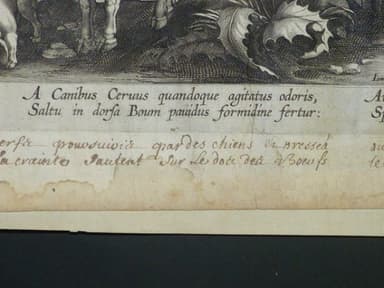 A Canibus Ceruus quandoque agitatus odoris,
Saltu in dorsa Boum pauidus formidine fertur:
poursuivis par des chiens
la crainte sautent sur le dos des Bœufs